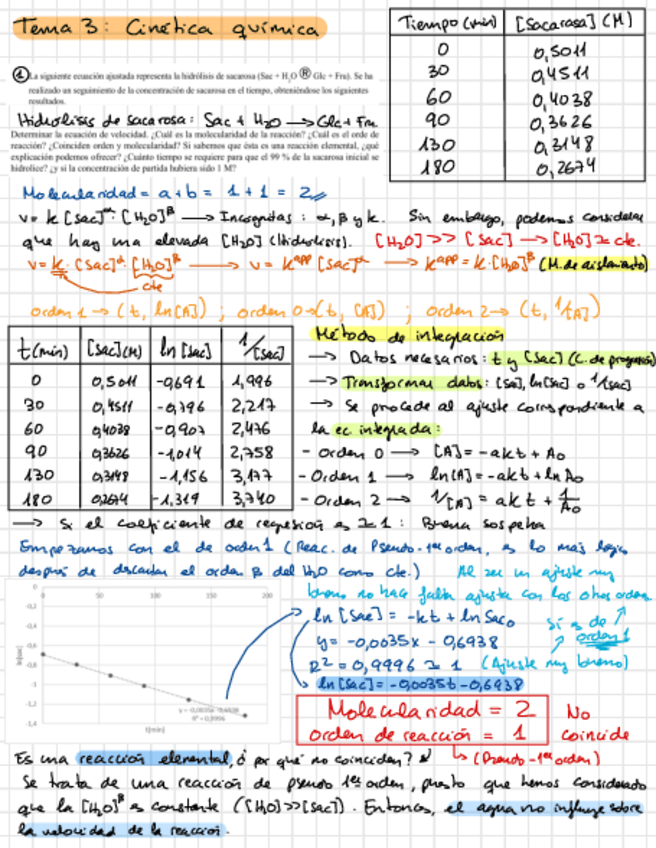 Tema 3: Cinética química
Tiempo (min) [Sacarosa] (M)
0 0,5011
30 0,4511
60 0,4038
90 0,3626
130 0,3148
180 0,2674
① La siguiente ecuación ajustada representa la hidrólisis de sacarosa (Sac + H2O ® Glc + Fru). Se ha
realizado un seguimiento de la concentración de sacarosa en el tiempo, obteniéndose los siguientes
resultados.
Hidrólisis de sacarosa: Sac + H2O → Glc + Fru
Determinar la ecuación de velocidad. ¿Cuál es la molecularidad de la reacción? ¿Cuál es el orde de
reacción? ¿Coinciden orden y molecularidad? Si sabemos que ésta es una reacción elemental, ¿qué
explicación podemos ofrecer? ¿Cuánto tiempo se requiere para que el 99 % de la sacarosa inicial se
hidrolice? ¿y si la concentración de partida hubiera sido 1 M?
Molecularidad = a + b = 1 + 1 = 2
v = k [Sac]^α · [H2O]^β → Incognitas: α, β y k. Sin embargo, podemos considerar
que hay una elevada [H2O] (Hidrólisis). [H2O] >> [Sac] → [H2O] ≃ cte.
v = k · [Sac]^α · [H2O]^β → v = k^app [Sac]^α → k^app = k · [H2O]^β (M. de aislamiento)
cte
orden 1 → (t, ln[A]) ; orden 0 → (t, [A]) ; orden 2 → (t, 1/[A])
t(min) [Sac](M) ln [Sac] 1/[Sac]
0 0,5011 -0,691 1,996
30 0,4511 -0,796 2,217
60 0,4038 -0,907 2,476
90 0,3626 -1,014 2,758
130 0,3148 -1,156 3,177
180 0,2674 -1,319 3,740
Método de integración
→ Datos necesarios: t y [Sac] (C. de progresión)
→ Transformar datos: [Sac], ln[Sac] o 1/[Sac]
→ Se procede al ajuste correspondiente a
la ec integrada:
- Orden 0 → [A] = -akt + A0
- Orden 1 → ln[A] = -akt + ln A0
- Orden 2 → 1/[A] = akt + 1/A0
→ Si el coeficiente de regresión es ≃ 1: Buena sospecha
Empezamos con el de orden 1 (Reac. de Pseudo-1er orden, es lo más lógico
después de descartar el orden β del H2O como cte.)
Al ser un ajuste muy
bueno no hace falta ajustar con los otros orden
0 50 100 150 200
0
-0,2
-0,4
-0,6
-0,8
-1
-1,2
-1,4
ln[sac]
t(min)
y = -0,0035x - 0,6938
R² = 0,9996
ln [Sac] = -kt + ln Sac0
y = -0,0035x - 0,6938
R² = 0,9996 ≃ 1 (Ajuste muy bueno)
ln [Sac] = -0,0035t - 0,6938
Sí es de
orden 1
Molecularidad = 2
orden de reacción = 1
No
coincide
↳ (Pseudo-1er orden)
Es una reacción elemental, ¿por qué no coinciden?
Se trata de una reacción de pseudo 1er orden, puesto que hemos considerado
que la [H2O]^β es constante ([H2O] >> [Sac]). Entonces, el agua no influye sobre
la velocidad de la reacción.